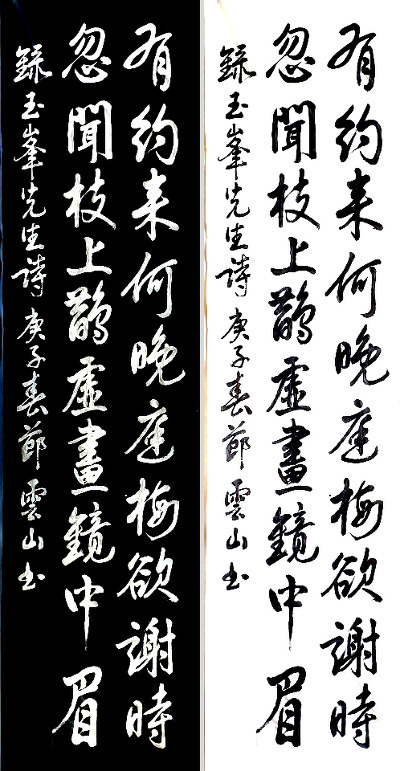 有約来何晚庭梅欲謝時
忽聞枝上鵲虛畫鏡中眉
錄玉峯先生詩庚子春節雲山书
有約来何晚庭梅欲謝時
忽聞枝上鵲虛畫鏡中眉
錄玉峯先生詩庚子春節雲山书